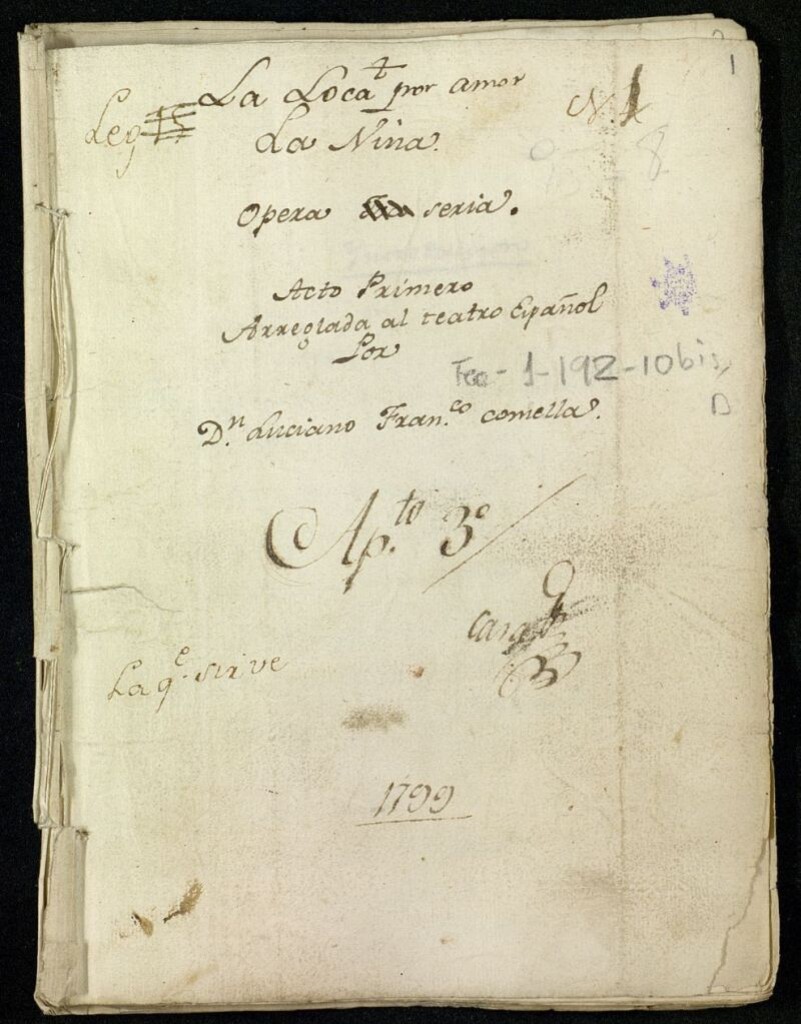 1
La Loca por amor
Leg
N. 1
La Nina.
Opera seria.
Acto Primero
Arreglada al teatro Español
Por
Tea - 1-192-10 bis,
D
D.n Luciano Fran.co comella.
Ap.to 3º
La q.e sirve
1799